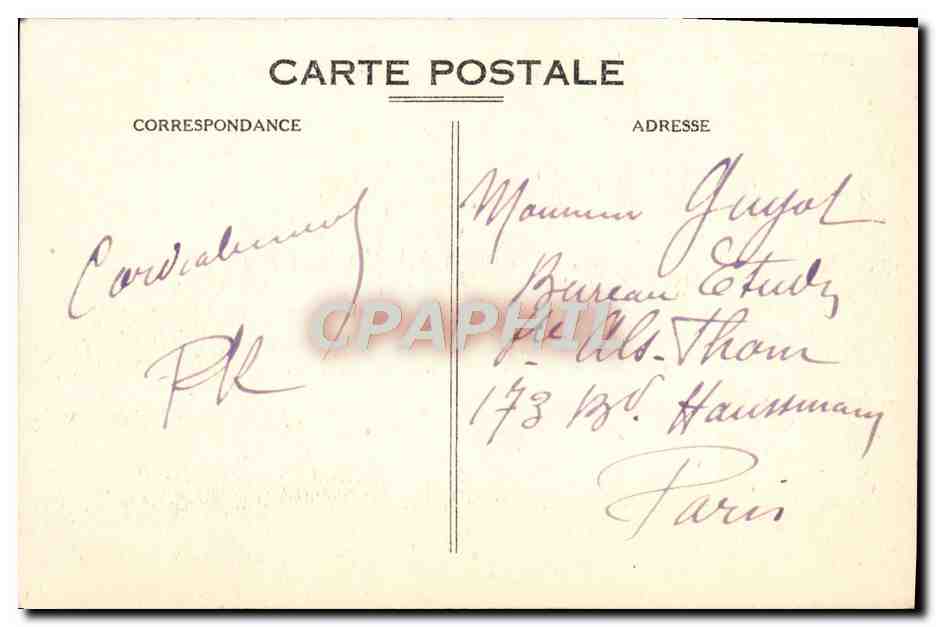 CARTE POSTALE
CORRESPONDANCE
ADRESSE
Cordialement
PK
Monsieur Guyot
Bureau Etudes
Sté Als-Thom
173 Bd. Haussmann
Paris
CPAPHIL